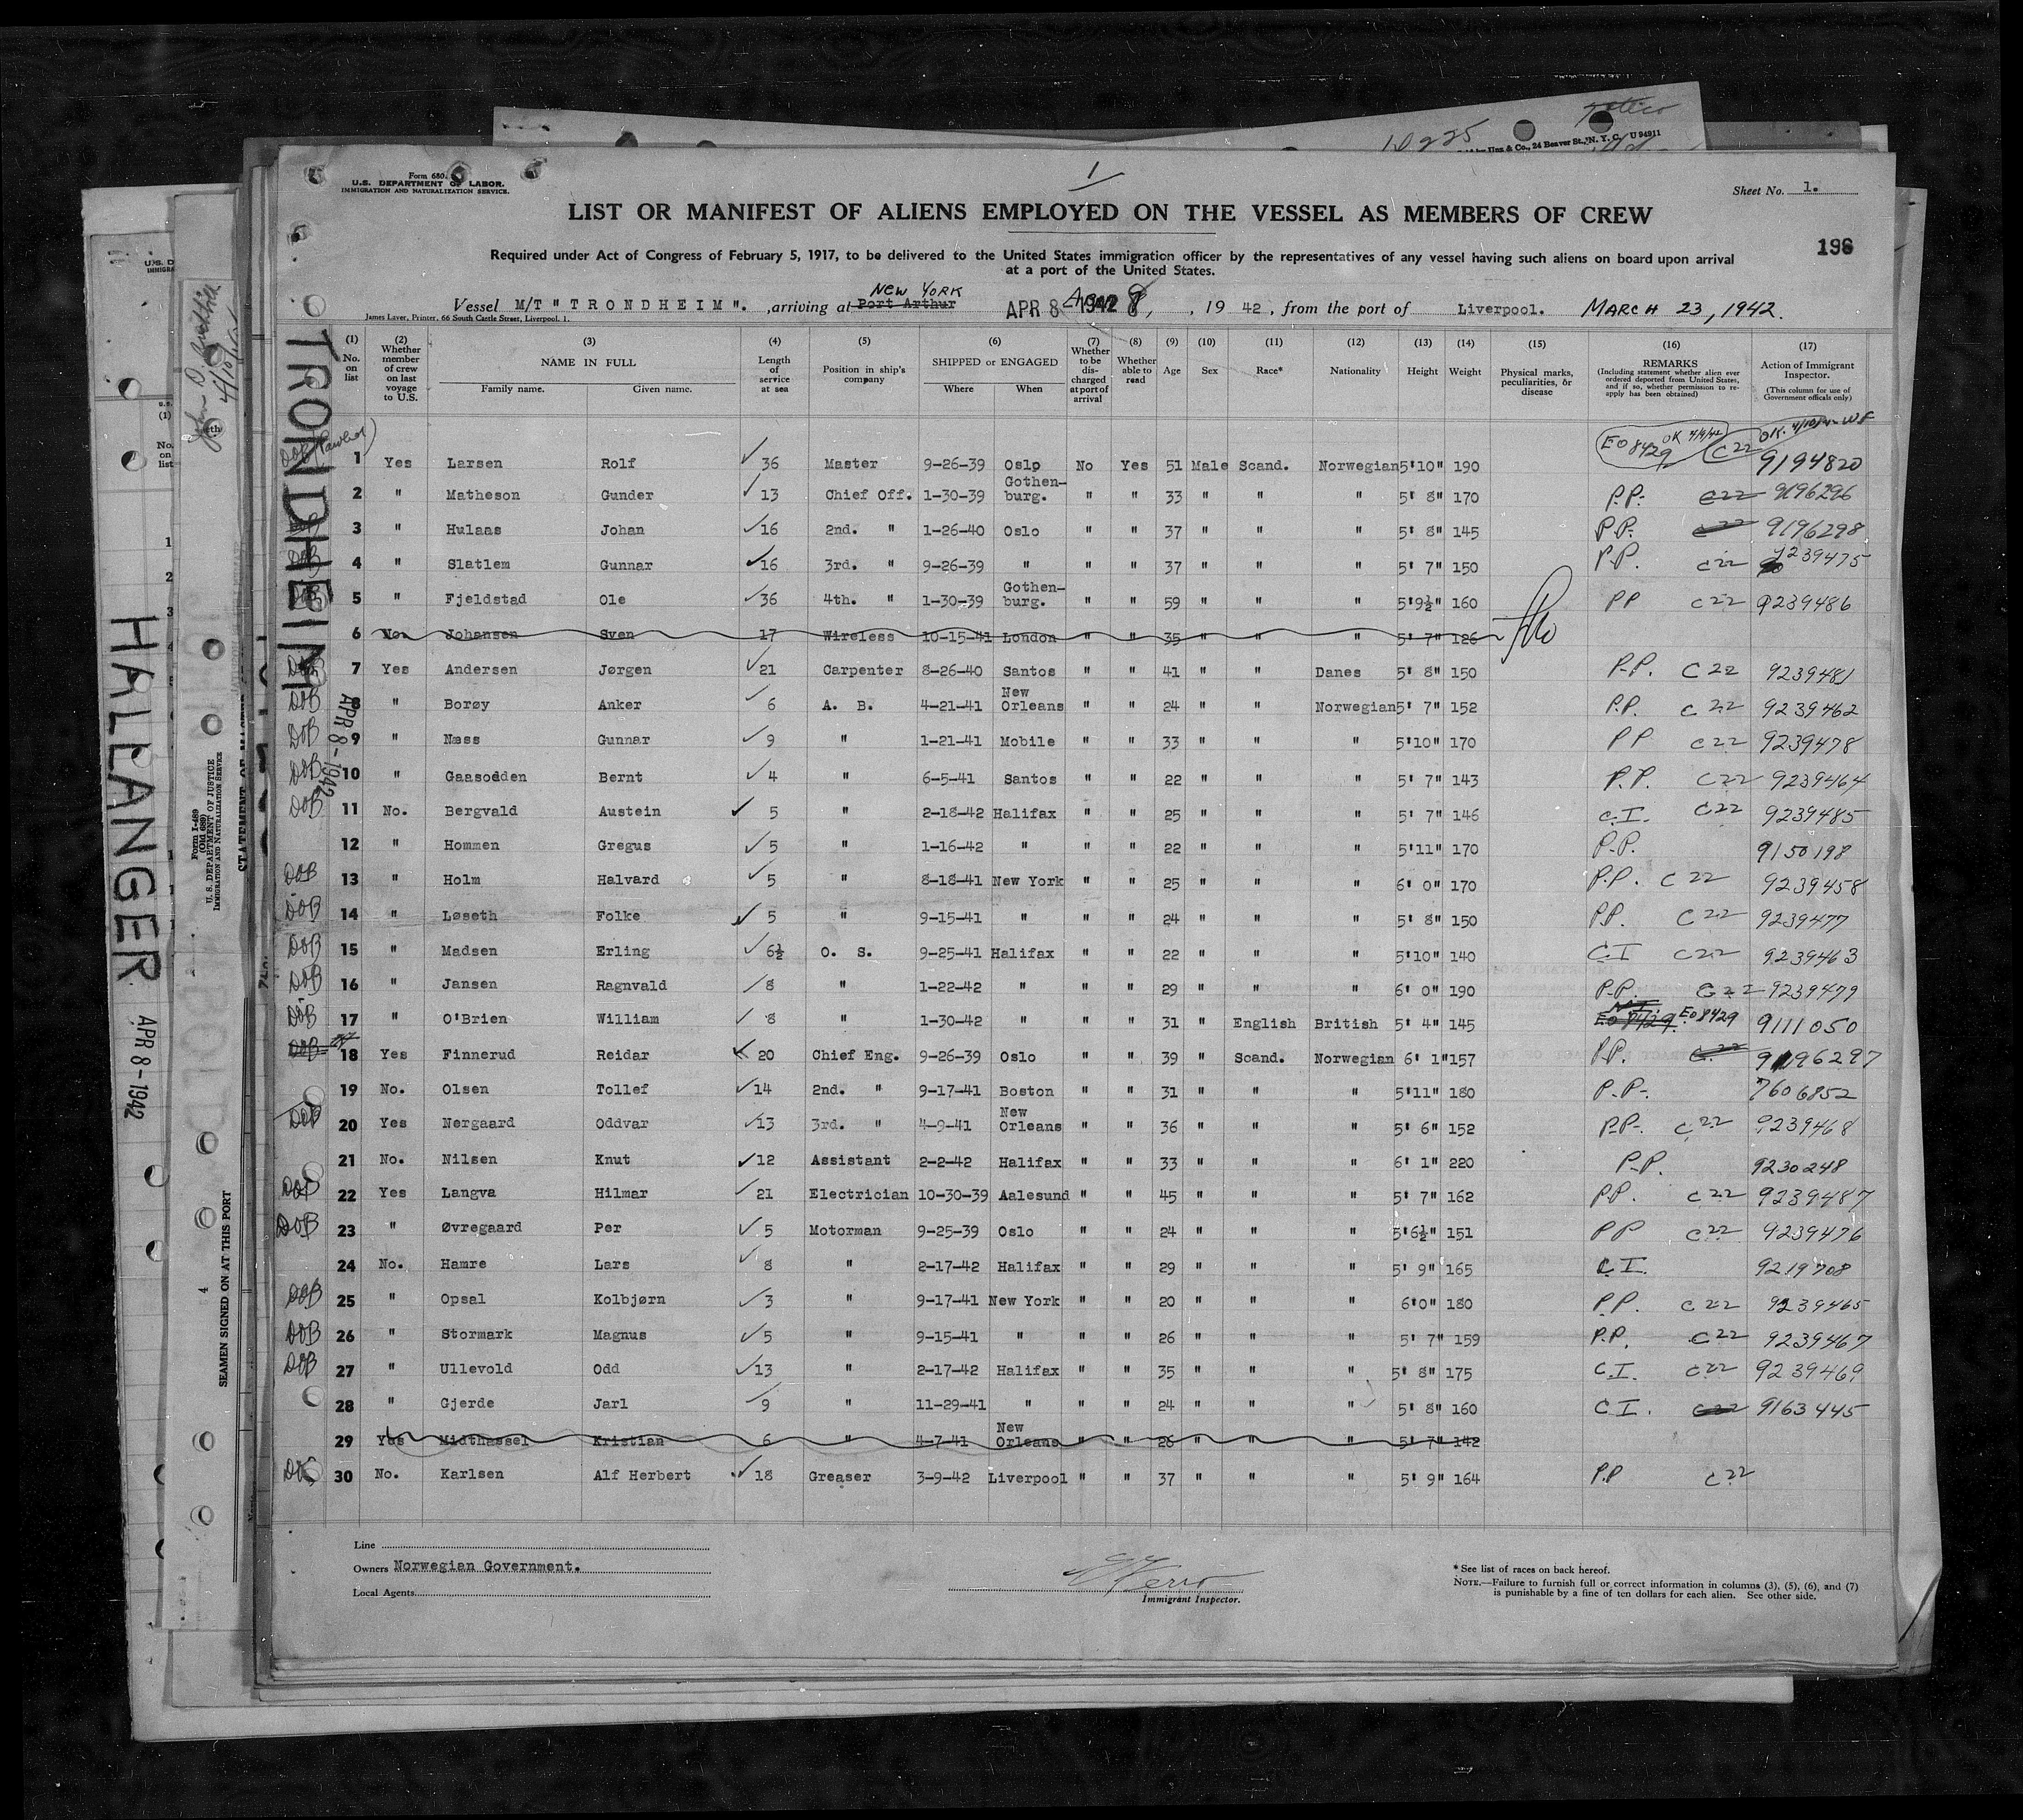 Form 680.
U.S. DEPARTMENT OF LABOR.
IMMIGRATION AND NATURALIZATION SERVICE.
1
Sheet No. 1.
LIST OR MANIFEST OF ALIENS EMPLOYED ON THE VESSEL AS MEMBERS OF CREW
Required under Act of Congress of February 5, 1917, to be delivered to the United States immigration officer by the representatives of any vessel having such aliens on board upon arrival
at a port of the United States.
196
NEW YORK
Vessel M/T "TRONDHEIM". , arriving at Port Arthur APR 8 1942 8, , 19 42, from the port of Liverpool. MARCH 23, 1942.
James Laver, Printer, 66 South Castle Street, Liverpool, 1.
(1) No. on list (2) Whether member of crew on last voyage to U.S. (3) NAME IN FULL Family name. Given name. (4) Length of service at sea (5) Position in ship's company (6) SHIPPED or ENGAGED Where When (7) Whether to be discharged at port of arrival (8) Whether able to read (9) Age (10) Sex (11) Race* (12) Nationality (13) Height (14) Weight (15) Physical marks, peculiarities, or disease (16) REMARKS (Including statement whether alien ever ordered deported from United States, and if so, whether permission to re-apply has been obtained) (17) Action of Immigrant Inspector. (This column for use of Government officials only)
1 Yes Larsen Rolf 36 Master 9-26-39 Oslo No Yes 51 Male Scand. Norwegian 5'10" 190 EO 8429 OK 4/9/42 C22 OK. 4/10/42 9194820
2 " Matheson Gunder 13 Chief Off. 1-30-39 Gothenburg. " " 33 " " " 5' 8" 170 P.P. C22 9196296
3 " Hulaas Johan 16 2nd. " 1-26-40 Oslo " " 37 " " " 5' 8" 145 P.P. C22 9196298
4 " Slatlem Gunnar 16 3rd. " 9-26-39 " " " 37 " " " 5' 7" 150 P.P. C22 9239475
5 " Fjeldstad Ole 36 4th. " 1-30-39 Gothenburg. " " 59 " " " 5'9½" 160 PP C22 9239486
6 No. Johansen Sven 17 Wireless 10-15-41 London " " 35 " " " 5' 7" 126
7 Yes Andersen Jørgen 21 Carpenter 8-26-40 Santos " " 41 " " Danes 5' 8" 150 P.P. C22 9239481
8 " Borøy Anker 6 A. B. 4-21-41 New Orleans " " 24 " " Norwegian 5' 7" 152 P.P. C22 9239462
9 " Næss Gunnar 9 " 1-21-41 Mobile " " 33 " " " 5'10" 170 PP C22 9239478
10 " Gaasodden Bernt 4 " 6-5-41 Santos " " 22 " " " 5' 7" 143 P.P. C22 9239464
11 No. Bergvald Austein 5 " 2-18-42 Halifax " " 25 " " " 5' 7" 146 C.I. C22 9239485
12 " Hommen Gregus 5 " 1-16-42 " " " 22 " " " 5'11" 170 P.P. 9150198
13 " Holm Halvard 5 " 8-18-41 New York " " 25 " " " 6' 0" 170 P.P. C22 9239458
14 " Løseth Folke 5 " 9-15-41 " " " 24 " " " 5' 8" 150 PP. C22 9239477
15 " Madsen Erling 6½ O. S. 9-25-41 Halifax " " 22 " " " 5'10" 140 C.I C22 9239463
16 " Jansen Ragnvald 8 " 1-22-42 " " " 29 " " " 6' 0" 190 P.P. C22 9239479
17 " O'Brien William 8 " 1-30-42 " " " 31 " English British 5' 4" 145 EO 8429 EO 8429 9111050
18 Yes Finnerud Reidar 20 Chief Eng. 9-26-39 Oslo " " 39 " Scand. Norwegian 6' 1" 157 P.P. C22 9196297
19 No. Olsen Tollef 14 2nd. " 9-17-41 Boston " " 31 " " " 5'11" 180 P.P. 7606852
20 Yes Nergaard Oddvar 13 3rd. " 4-9-41 New Orleans " " 36 " " " 5' 6" 152 P.P. C22 9239468
21 No. Nilsen Knut 12 Assistant 2-2-42 Halifax " " 33 " " " 6' 1" 220 P.P. 9230248
22 Yes Langva Hilmar 21 Electrician 10-30-39 Aalesund " " 45 " " " 5' 7" 162 P.P. C22 9239487
23 " Øvregaard Per 5 Motorman 9-25-39 Oslo " " 24 " " " 5'6½" 151 PP C22 9239476
24 No. Hamre Lars 8 " 2-17-42 Halifax " " 29 " " " 5' 9" 165 C.I. 9219708
25 " Opsal Kolbjørn 3 " 9-17-41 New York " " 20 " " " 6'0" 180 P.P. C22 9239465
26 " Stormark Magnus 5 " 9-15-41 " " " 26 " " " 5' 7" 159 P.P. C22 9239467
27 " Ullevold Odd 13 " 2-17-42 Halifax " " 35 " " " 5' 8" 175 C.I. C22 9239469
28 " Gjerde Jarl 9 " 11-29-41 " " " 24 " " " 5' 8" 160 C.I. C22 9163445
29 Yes Midthassel Kristian 6 " 4-7-41 New Orleans " " 26 " " " 5' 7" 142
30 No. Karlsen Alf Herbert 18 Greaser 3-9-42 Liverpool " " 37 " " " 5' 9" 164 P.P C22
Line
Owners Norwegian Government.
Local Agents
Immigrant Inspector.
* See list of races on back hereof.
NOTE.—Failure to furnish full or correct information in columns (3), (5), (6), and (7)
is punishable by a fine of ten dollars for each alien. See other side.
TRONDHEIM
APR 8-1942
HALLANGER
APR 8-1942
Form I-489
(Old 689)
U. S. DEPARTMENT OF JUSTICE
IMMIGRATION AND NATURALIZATION SERVICE
SEAMEN SIGNED ON AT THIS PORT
4
& Co., 24 Beaver St., N. Y. C. U 94911